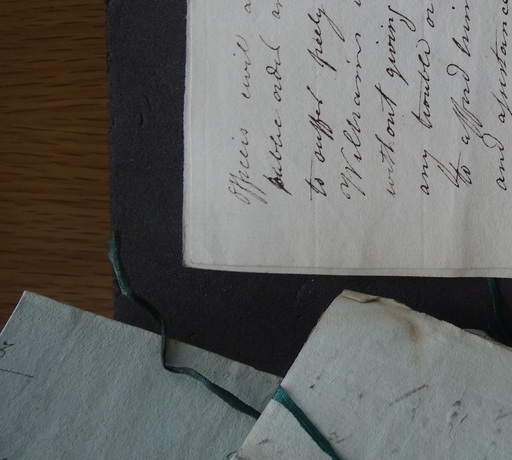 Officers civil a
public order an
to suffer freely
Williams
without giving
any trouble or
to afford him
and assistance